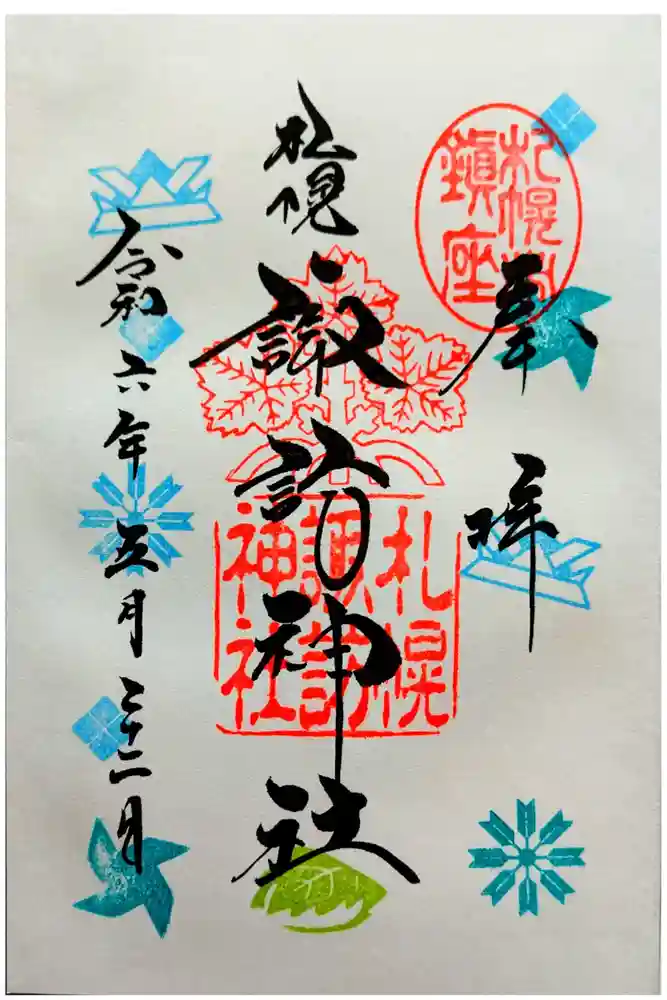 札幌村
鎮座
奉拝
札幌
諏訪神社
札幌
諏訪
神社
令和六年五月二十二日